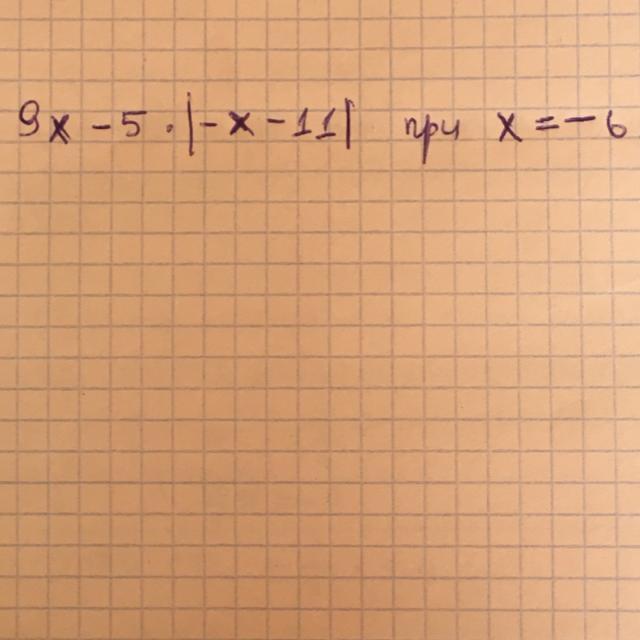 9x - 5 · |-x - 11| при x = -6